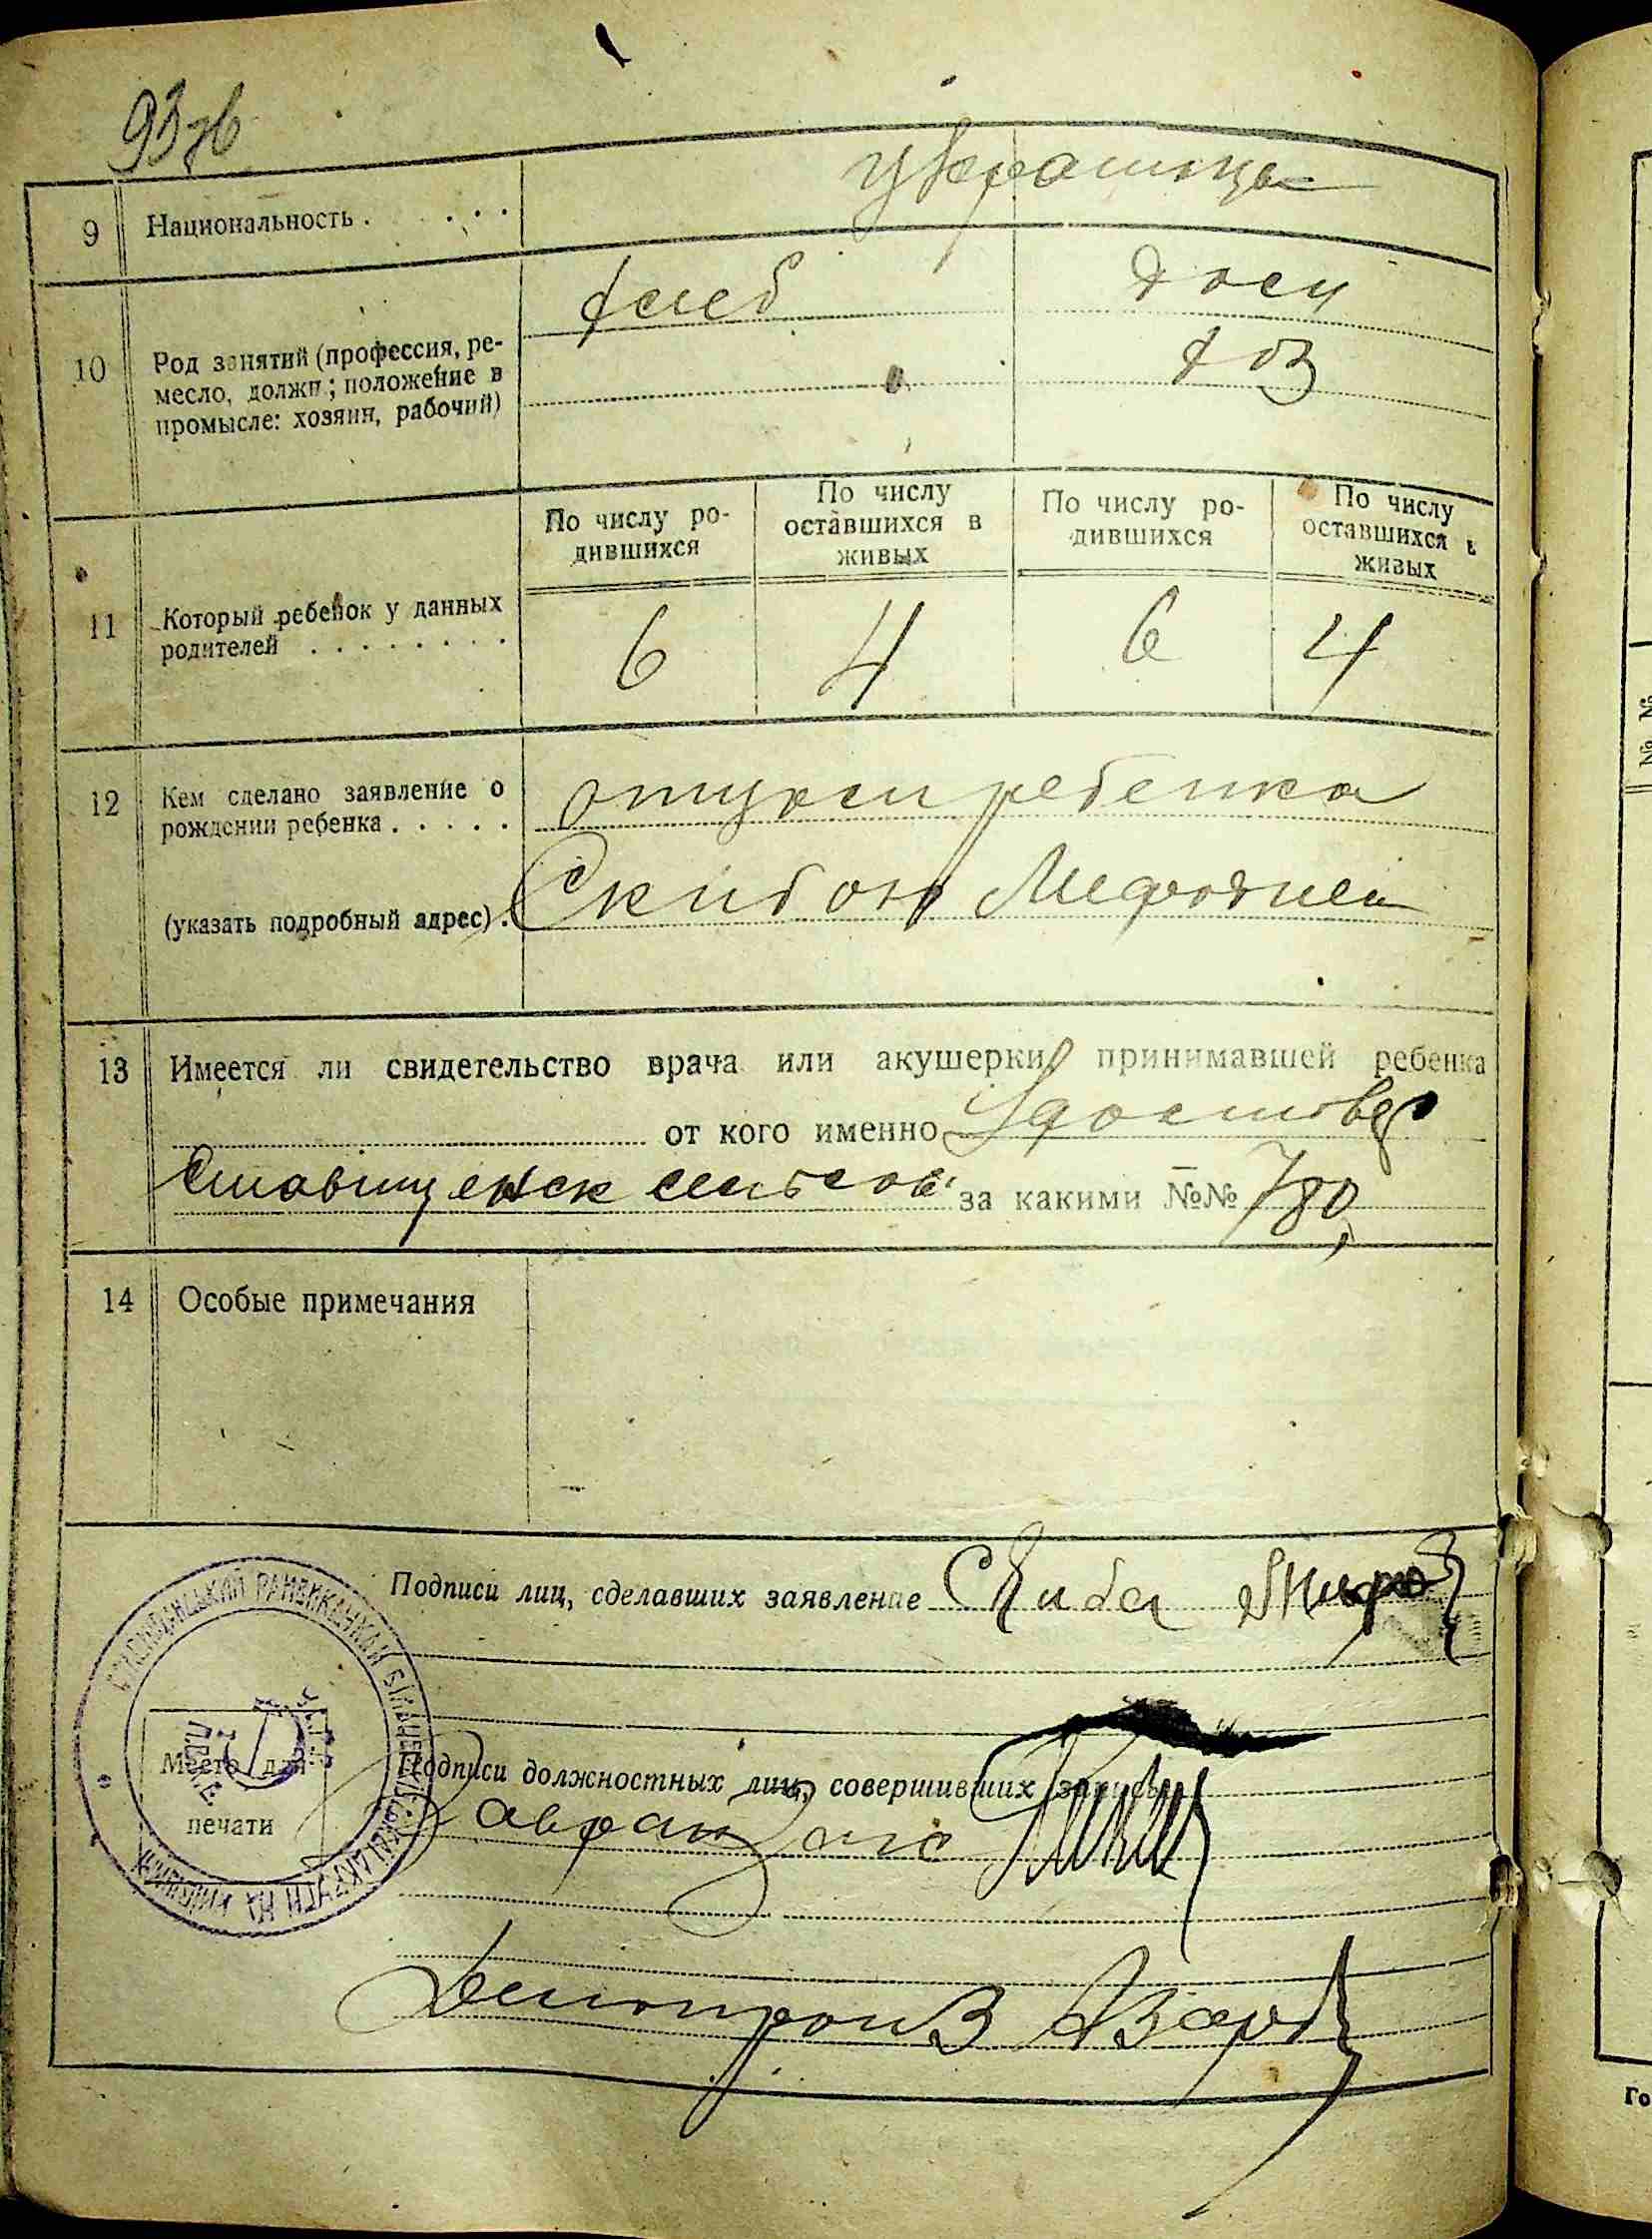 93 зв
9 Национальность . . . . украинцы
10 Род занятий (профессия, ре-
месло, должн.; положение в
промысле: хозяин, рабочий)
хлеб дом
хоз
11 Который ребенок у данных
родителей . . . . . . . .
По числу ро-
дившихся
По числу
оставшихся в
живых
По числу ро-
дившихся
По числу
оставшихся в
живых
6 4 6 4
12 Кем сделано заявление о
рождении ребенка . . . . .
отцом ребенка
(указать подробный адрес) . Скибою Мефодием
13 Имеется ли свидетельство врача или акушерки принимавшей ребенка
от кого именно Удостовер
Ставищенск сельсов. за какими №№ 780
14 Особые примечания
Подписи лиц, сделавших заявление Скиба Мифод
Место для
печати
Подписи должностных лиц, совершивших запись
Делопроизв